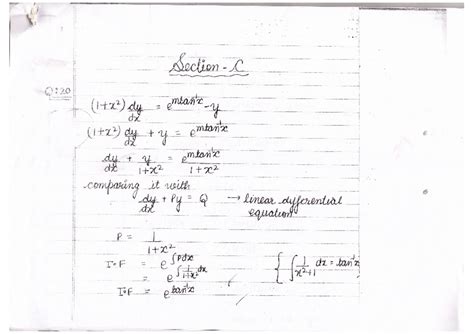 Section - C
Q:20
(1+x²) dy/dx = e^(mtan⁻¹x) - y
(1+x²) dy/dx + y = e^(mtan⁻¹x)
dy/dx + y/(1+x²) = e^(mtan⁻¹x)/(1+x²)
comparing it with
dy/dx + Py = Q → linear dyfferential
equation
P = 1/(1+x²)
I.F = e^(∫Pdx)
= e^(∫1/(1+x²) dx) { ∫ 1/(x²+1) dx = tan⁻¹x
I.F = e^(tan⁻¹x)